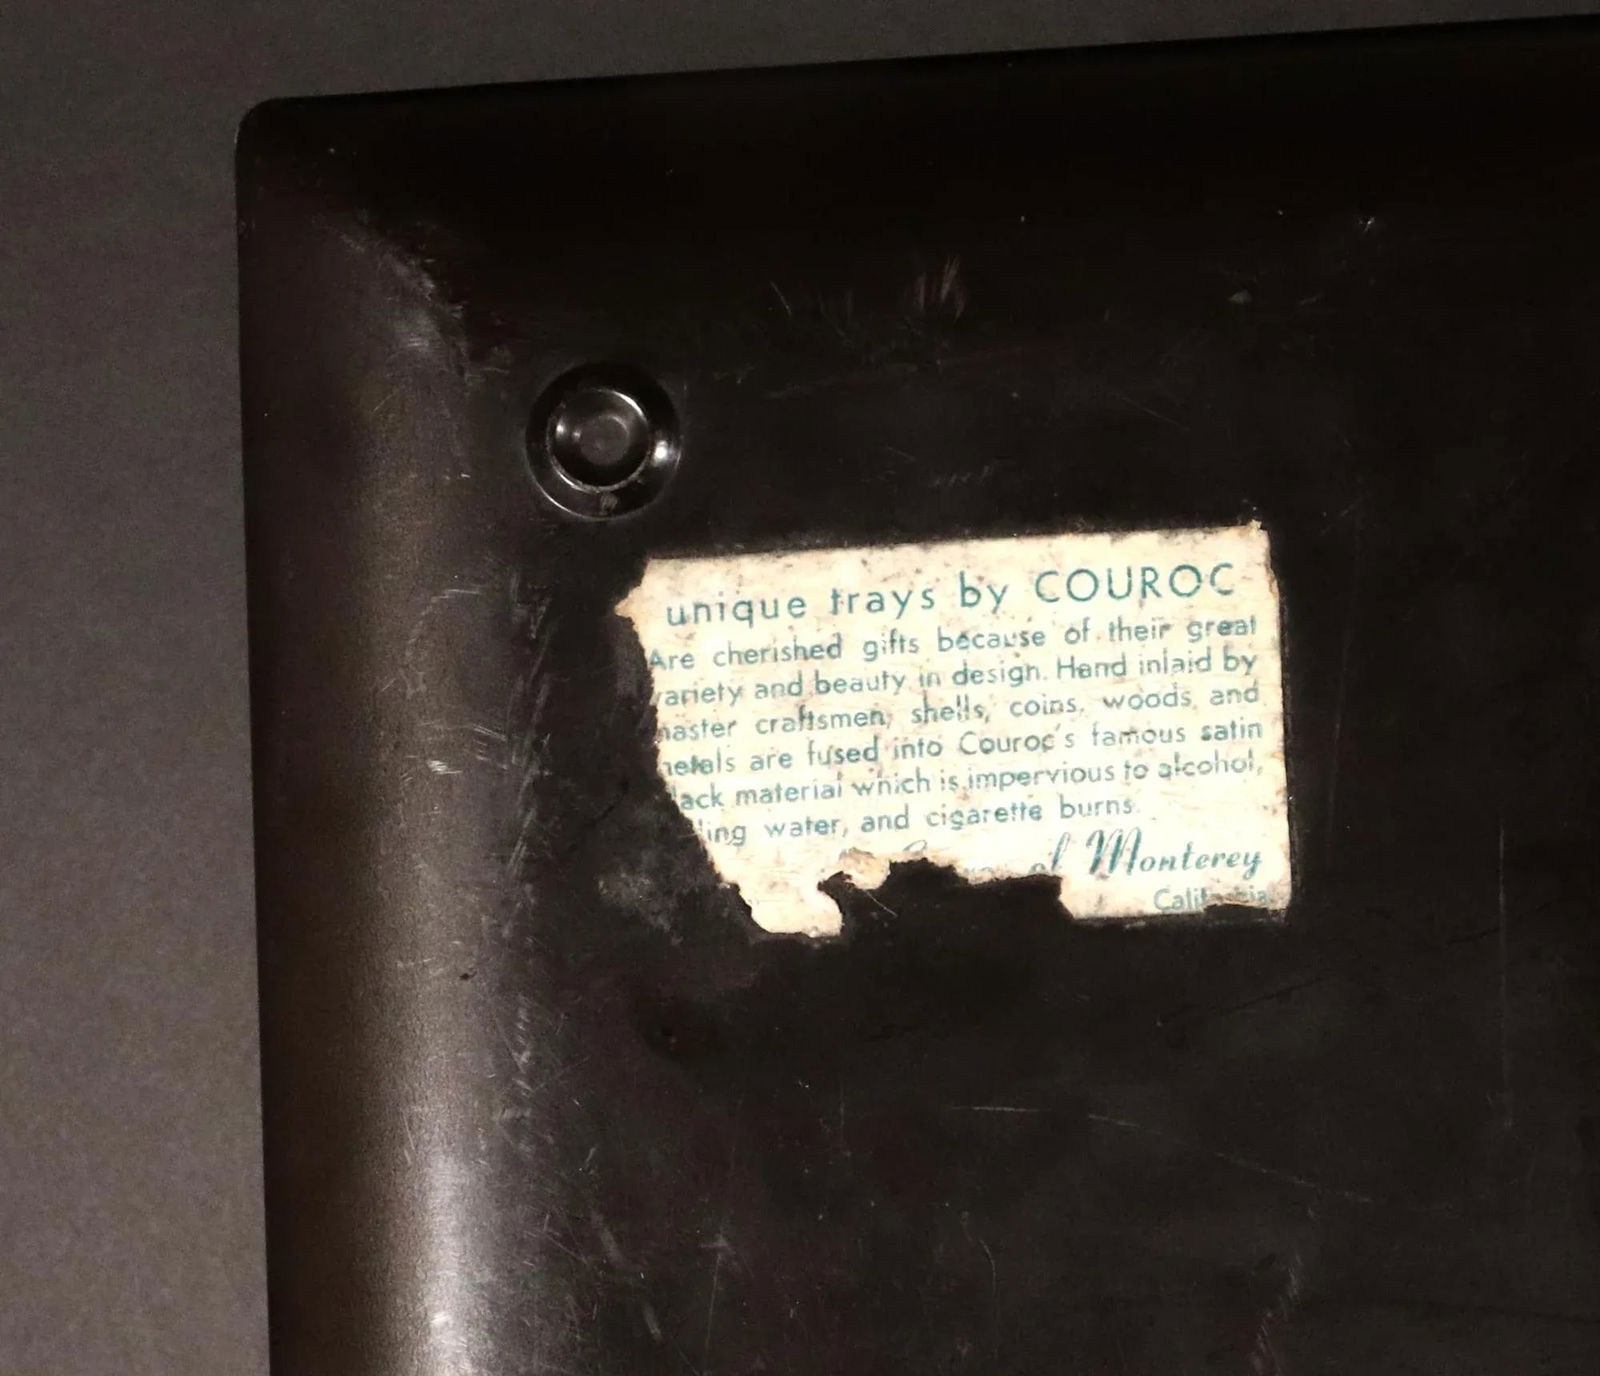 unique trays by COUROC
Are cherished gifts because of their great
variety and beauty in design. Hand inlaid by
master craftsmen, shells, coins, woods, and
metals are fused into Couroc's famous satin
lack material which is impervious to alcohol,
ling water, and cigarette burns.
of Monterey
California